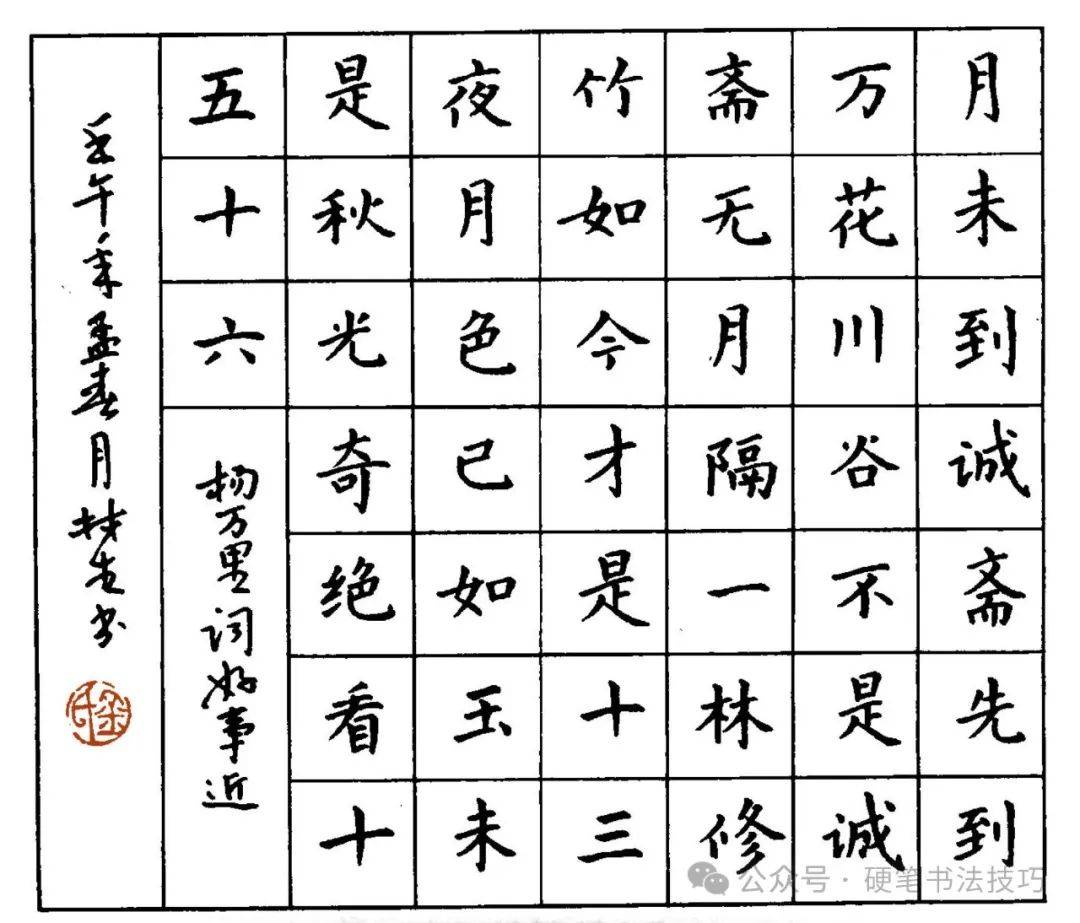 月未到诚斋先到
万花川谷不是诚
斋无月隔一林修
竹如今才是十三
夜月色已如玉未
是秋光奇绝看十
五十六
杨万里词好事近
壬午年孟春月林书
公众号·硬笔书法技巧